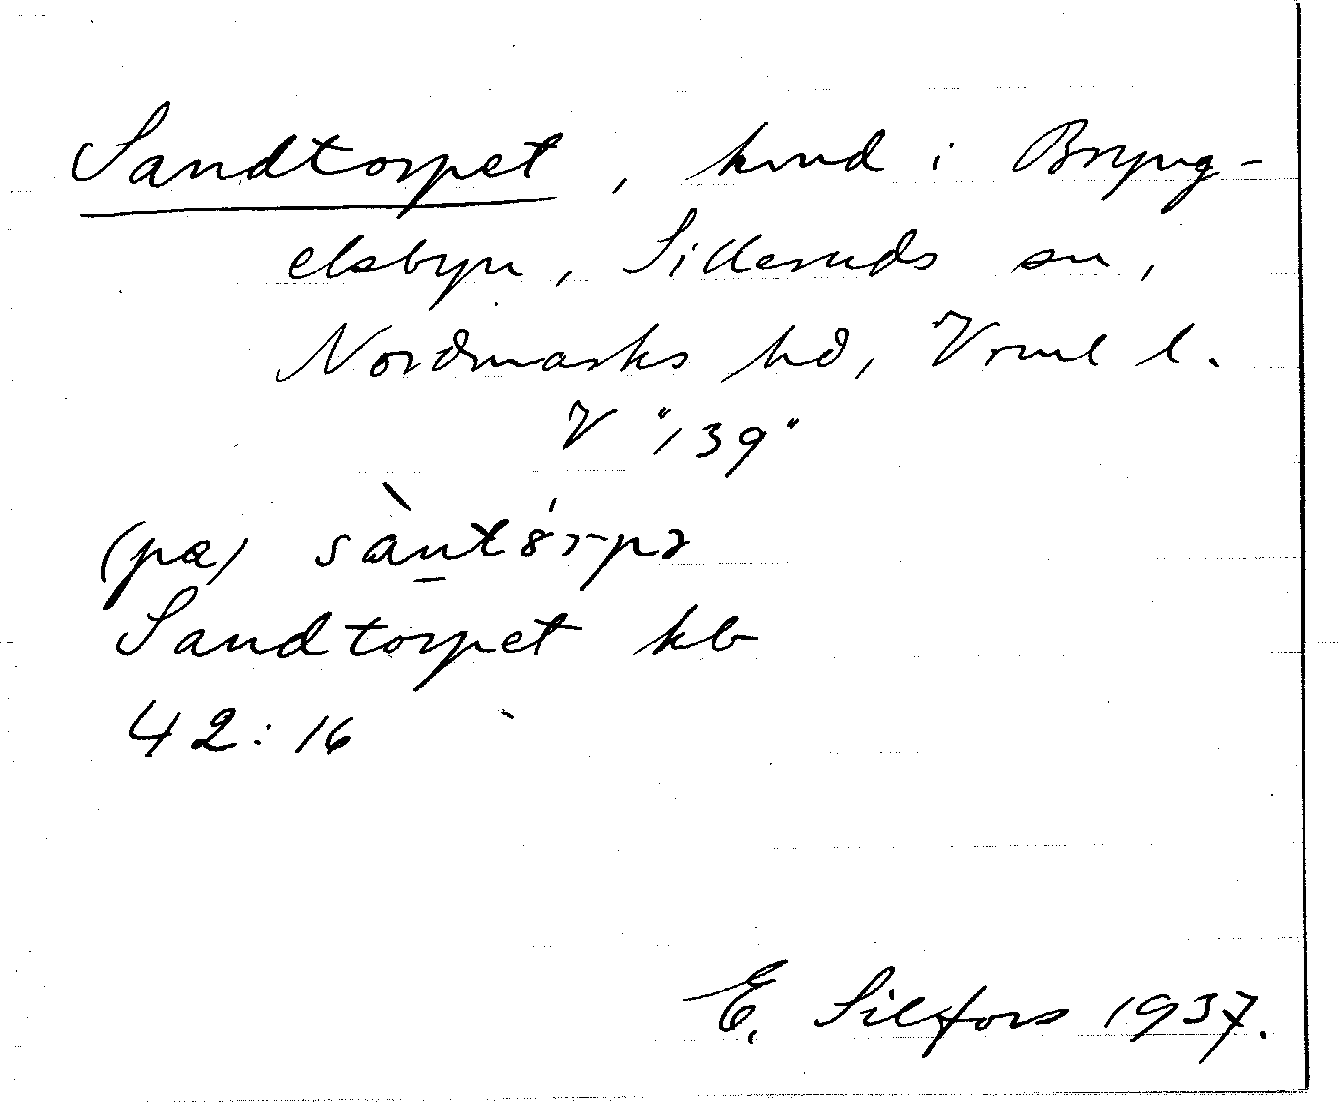 Sandtorpet, hmd i Bryng-
elsbyn, Silleruds sn,
Nordmarks hd, Vrml l.
V "139"
(pa) sàntó̱rpə
Sandtorpet kb
42:16
E. Silfors 1937.